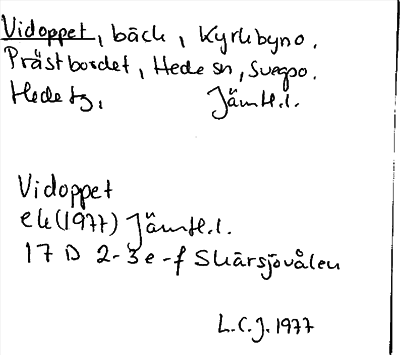 Vidoppet, bäck, Kyrkbyno.
Prästbordet, Hede sn, Svegpo.
Hede tg, Jämtl.l.
Vidoppet
ek (1977) Jämtl.l.
17 D 2-3 e-f Skärsjovålen
L.C.J. 1977